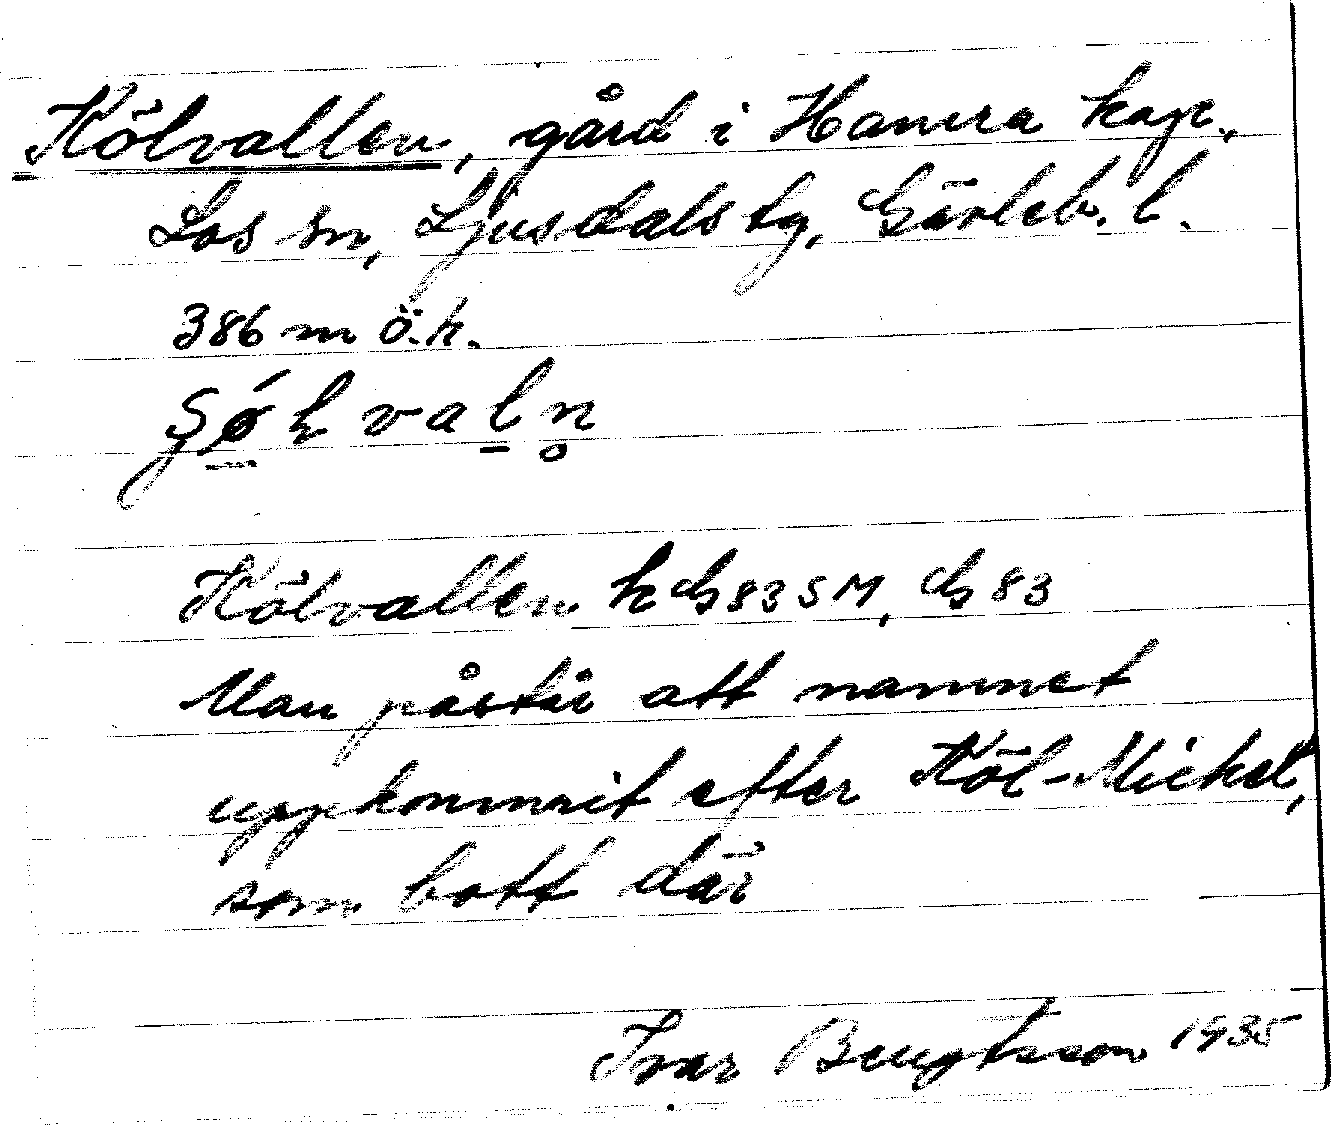 Kölvallen, gård i Hamra kap.,
Los sn, Ljusdals tg, Gävleb. l.
386 m ö.h.
Kölvallen k G 83 SM, G 83
Man påstår att namnet
uppkommit efter Köl-Mickel,
som bott där
Ivar Bengtsson 1935